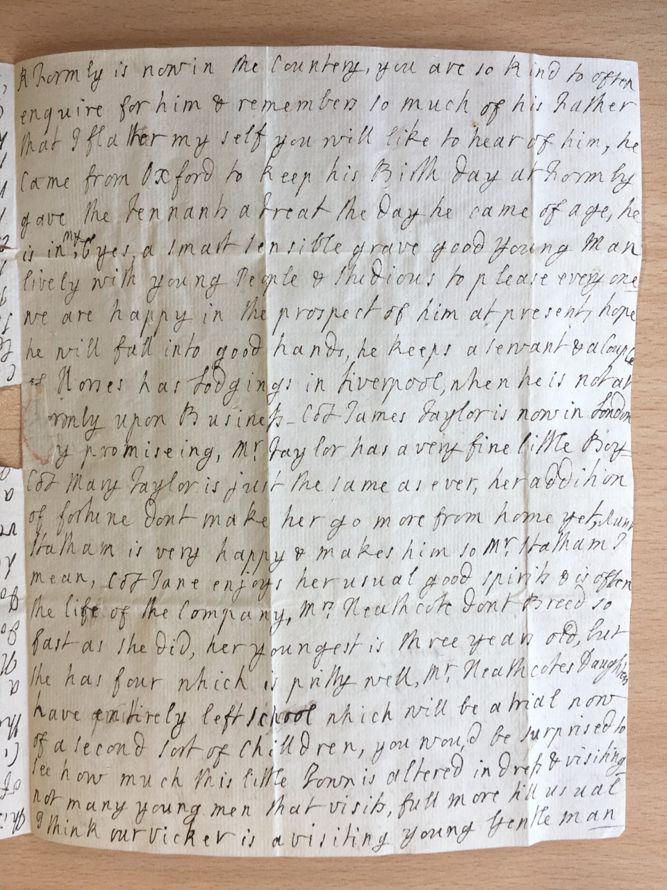 Formby is now in the Countery, you are so kind to often
enquire for him & remembers so much of his Father
that I flatter my self you will like to hear of him, he
Came from Oxford to keep his Birth day at Formby
gave the tennants a treat the day he came of age, he
is in my Eyes, a smart sensible grave good young Man
lively with young People & studious to please every one
we are happy in the prospect of him at present, hope
he will fall into good hands, he keeps a servant & a Couple
of Horses has Lodgings in Liverpool, when he is not at
ormby upon Business - Cos James Taylor is now in London
y promiseing, Mr Taylor has a very fine little Boy
Cos Mary Taylor is just the same as ever, her addition
of fortune dont make her go more from home yet, Aunt
Statham is very happy & makes him so Mr Statham I
mean, Cos Jane enjoys her usual good spirits & is often
the life of the Company, Mrs Heathcote dont Breed so
fast as she did, her youngest is three years old, but
she has four which is pritty well, Mr Heathcotes Daughters
have entirely left school which will be a trial now
of a second sort of Children, you wou'd be surprised to
see how much this little Town is altered in dress & visiting
not many young men that visits, full more till usual
I think our vicker is a visiting young Gentleman